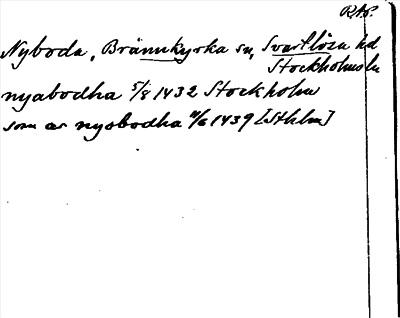 RAP.
Nyboda, Brännkyrka sn, Svartlösa hd
Stockholms ln
nyabodha 5/8 1432 Stockholm
som er nyobodha 11/6 1439 [Sthlm]